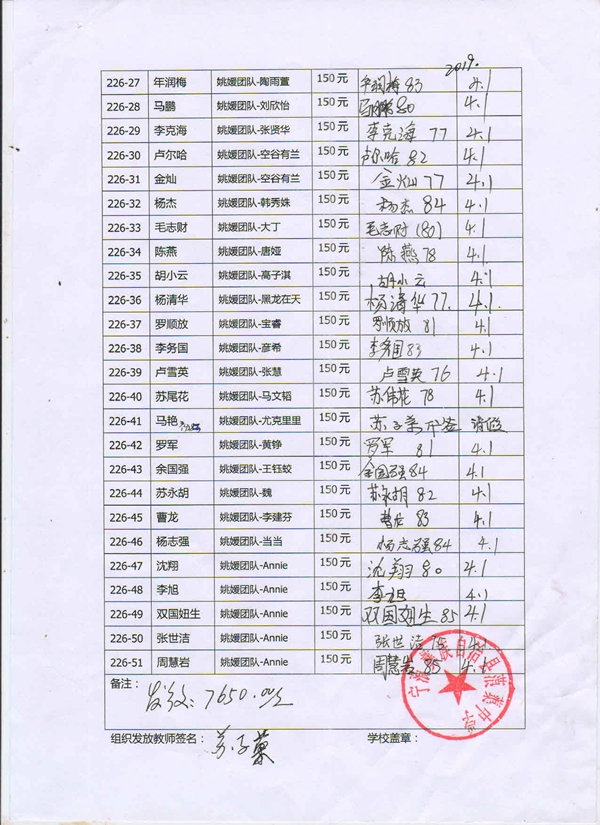 2019.
226-27 年润梅 姚媛团队-陶雨萱 150元 年润梅 83 4.1
226-28 马鹏 姚媛团队-刘欣怡 150元 马鹏 80 4.1
226-29 李克海 姚媛团队-张贤华 150元 李克海 77 4.1
226-30 卢尔哈 姚媛团队-空谷有兰 150元 卢尔哈 82 4.1
226-31 金灿 姚媛团队-空谷有兰 150元 金灿 77 4.1
226-32 杨杰 姚媛团队-韩秀姝 150元 杨杰 84 4.1
226-33 毛志财 姚媛团队-大丁 150元 毛志财 (80) 4.1
226-34 陈燕 姚媛团队-唐娅 150元 陈燕 78 4.1
226-35 胡小云 姚媛团队-高子淇 150元 胡小云 4.1
226-36 杨清华 姚媛团队-黑龙在天 150元 杨清华 77. 4.1.
226-37 罗顺放 姚媛团队-宝睿 150元 罗顺放 81 4.1
226-38 李务国 姚媛团队-彦希 150元 李务国 83 4.1
226-39 卢雪英 姚媛团队-张慧 150元 卢雪英 76 4.1
226-40 苏尾花 姚媛团队-马文韬 150元 苏伟花 78 4.1
226-41 马艳 姚媛团队-尤克里里 150元 苏子美 请假
226-42 罗军 姚媛团队-黄铮 150元 罗军 81 4.1
226-43 余国强 姚媛团队-王钰蛟 150元 余国强 84 4.1
226-44 苏永胡 姚媛团队-魏 150元 苏永胡 82 4.1
226-45 曹龙 姚媛团队-李建芬 150元 曹龙 83 4.1
226-46 杨志强 姚媛团队-当当 150元 杨志强 84 4.1
226-47 沈翔 姚媛团队-Annie 150元 沈翔 80 4.1
226-48 李旭 姚媛团队-Annie 150元 李旭 4.1
226-49 双国妞生 姚媛团队-Annie 150元 双国妞生 85 4.1
226-50 张世洁 姚媛团队-Annie 150元 张世洁 4.1
226-51 周慧岩 姚媛团队-Annie 150元 周慧岩 85 4.1
备注：
发放：7650.00元
组织发放教师签名： 学校盖章：